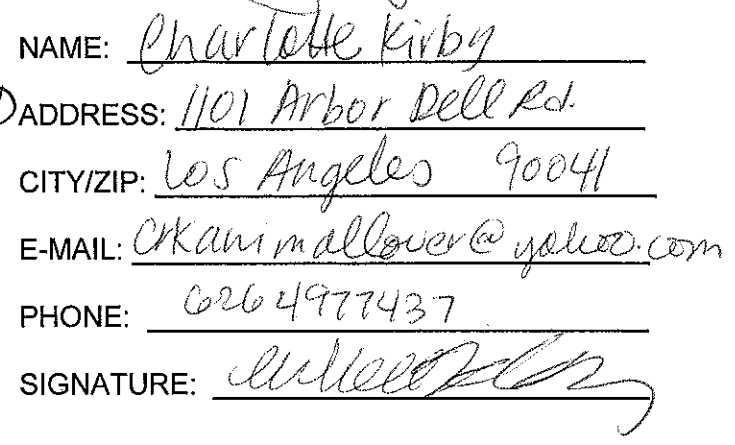 NAME: Charlotte Kirby
ADDRESS: 1101 Arbor Dell Rd.
CITY/ZIP: Los Angeles 90041
E-MAIL: Crkanimallover@yahoo.com
PHONE: 6264977437
SIGNATURE: